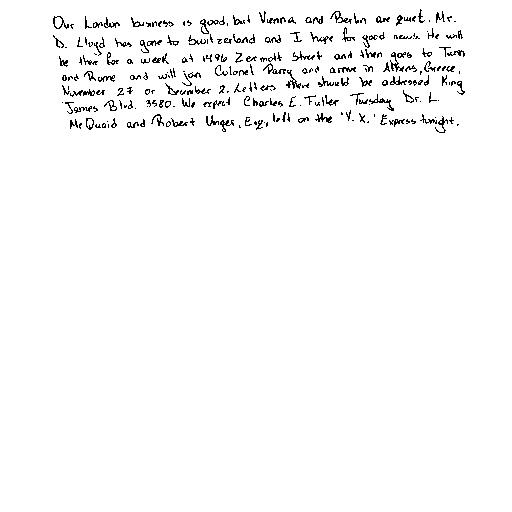 Our London business is good, but Vienna and Berlin are quiet. Mr.
D. Lloyd has gone to Switzerland and I hope for good news. He will
be there for a week at 1496 Zermott Street and then goes to Turin
and Rome and will join Colonel Parry and arrive in Athens, Greece,
November 27 or December 2. Letters there should be addressed King
James Blvd. 3580. We expect Charles E. Fuller Tuesday. Dr. L.
McQuaid and Robert Unger, Esq., left on the "Y. X." Express tonight.